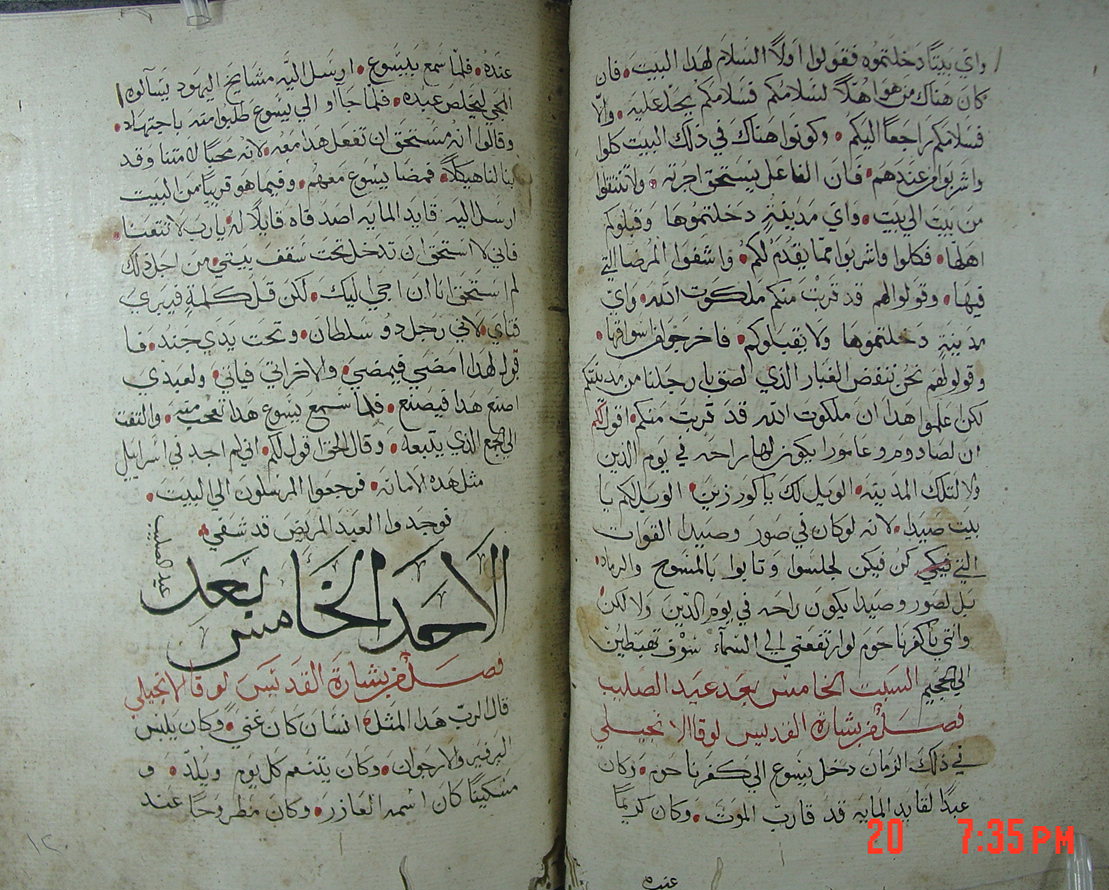 واي بيتًا دخلتموه فقولوا اولًا السلام لهذا البيت • فان
كان هناك من هو اهلًا لسلامكم فسلامكم يحل عليه • والا
فسلامكم راجعًا اليكم • وكونوا هناك في ذلك البيت كلوا
واشربوا من عندهم • فان الفاعل يستحق اجرته • ولا تنتقلوا
من بيت الى بيت • واي مدينةٍ دخلتموها وقبلوكم
اهلها • فكلوا واشربوا مما يقدم لكم • واشفوا المرضا التي
فيها • وقولوا لهم قد قربت منكم ملكوت الله • واي
مدينةٍ دخلتموها ولا يقبلوكم • فاخرجوا في اسواقها •
وقولوا لهم نحن ننفض الغبار الذي لصق بارجلنا من مدينتكم
لكن اعلموا هذا ان ملكوت الله قد قربت منكم • اقول لكم
ان لصادوم وعامورا يكون لها راحه في يوم الدين
ولا لتلك المدينه • الويل لك يا كورزين • الويل لكم يا
بيت صيدا • لانه لو كان في صور وصيدا القوات
التي فيكي كن فيكن لجلسوا وتابوا بالمسوح والرماد •
بل لصور وصيدا يكون راحه في يوم الدين ولا لكن
وانتي يا كفرناحوم لو ارتفعتي الى السمآء سوف تهبطين
الى الجحيم السبت الخامس بعد عيد الصليب
فصل من بشارة القديس لوقا الانجيلي
في ذلك الزمان دخل يسوع الى كفرناحوم • وكان
عبدًا لقايد المايه قد قارب الموت • وكان كريمًا
عنده
عنده • فلما سمع بيسوع • ارسل اليه مشايخ اليهود يسآلوه
المجي ليخلص عبده • فلما جاأو الى يسوع طلبوا منه باجتهاد •
وقالوا انه مستحق ان تفعل هذا معه • لانه محبًا لامتنا وقد
بنا لنا هيكلًا • فمضا يسوع معهم • وفيما هو قريبًا من البيت
ارسل اليه قايد المايه اصدقاه قايلًا له • يا رب لا تتعنا •
فاني لا استحق ان تدخل تحت سقف بيتي • من اجل ذلك
لم استحق انا ان اجي اليك • لكن قل كلمةٍ فيبرى
فتاي • لاني رجل ذو سلطان • وتحت يدي جند • فا
قول لهذا امضي فيمضي • ولاخر اتي فياتي • ولعبدي
اصنع هذا فيصنع • فلما سمع يسوع هذا تعجب منه • والتفت
الى الجمع الذي يتبعه • وقال الحق اقول لكم • اني لم اجد في اسراييل
مثل هذه الامانه • فرجعوا المرسلون الى البيت •
فوجدوا العبد المريض قد شفي •
الاحد الخامس بعد
عيد الصليب
فصل من بشارة القديس لوقا الانجيلي
قال الرب هذا المثل • انسان كان غني • وكان يلبس
البرفير والارجوان • وكان يتنعم كل يوم ويلذ • و
مسكينًا كان اسمه العاذر • وكان مطروحًا عند
١٢٠
20 7:35 PM